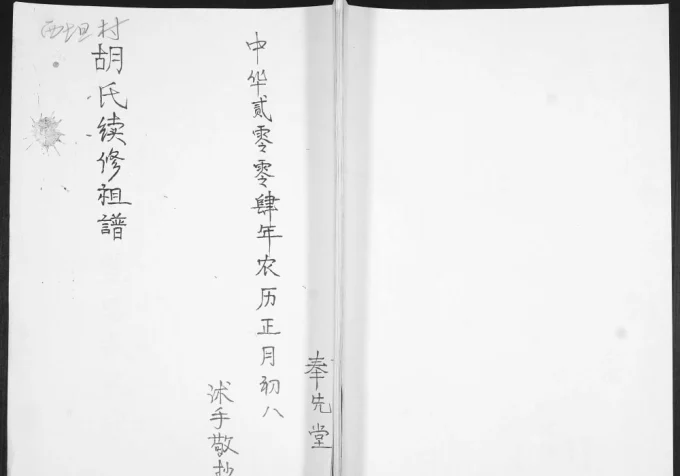 奉先堂
中华贰零零肆年农历正月初八
沭手敬抄
西坦村
胡氏续修祖譜